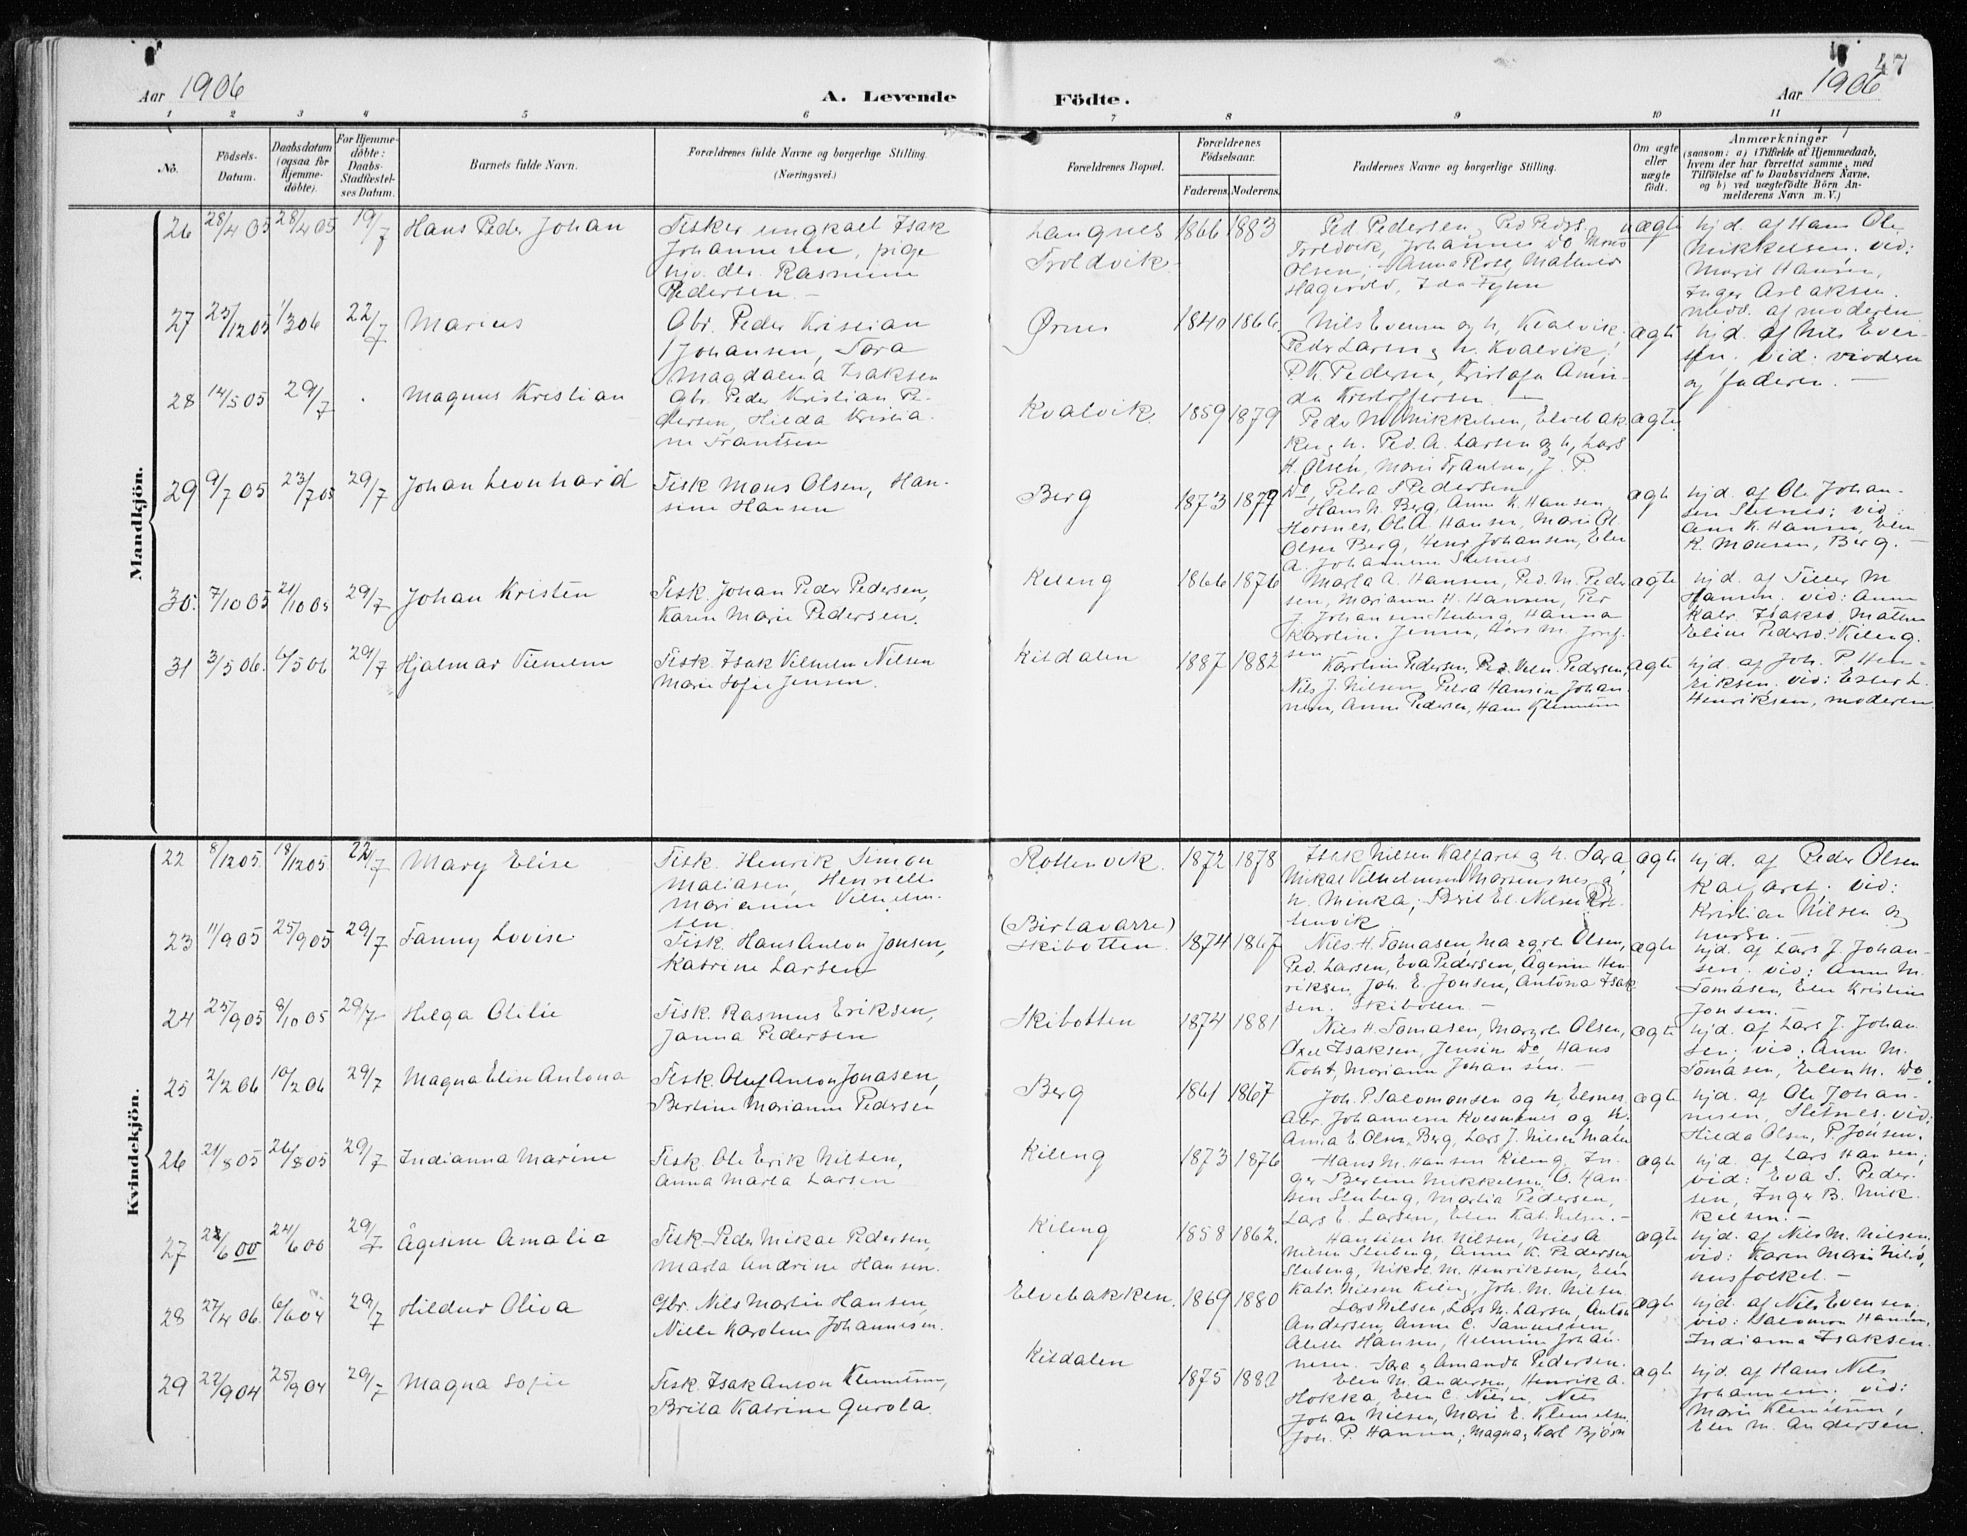 47
Aar 1906
A. Levende
Födte.
Aar 1906
1 2 3 4 5 6 7 8 9 10 11
No.
Födsels-
Datum.
Daabsdatum
(ogsaa for
Hjemme-
döbte).
For Hjemme-
döbte:
Daabs-
Stadfæstel-
ses Datum.
Barnets fulde Navn.
Forældrenes fulde Navne og borgerlige Stilling.
(Næringsvei.)
Forældrenes Bopæl.
Forældrenes
Födselsaar.
Faderens. Moderens.
Faddernes Navne og borgerlige Stilling.
Om ægte
eller
uægte
födt.
Anmærkninger
(saasom: a) i Tilfælde af Hjemmedaab,
hvem der har forrettet samme, med
Tilföielse af to Daabsvidners Navne,
og b) ved uægtefödte Börn An-
melderens Navn m. V.)
Mandkjön.
26 28/4 05 28/4 05 19/7 Hans Peder Johan
Fisker ungkarl Isak
Johannesen, pige
hjv. dtr. Rasmine
Pedersen. —
Langnes
Troldvik.
1866 1883
Ped Pedersen, Ped Peders.
Troldvik, Johannes Do Mons
Olsen;
uægte
hjd. af Hans Ol.
Mikkelsen; vid:
Marit Hansen,
Inger Aslaksen.
moderen
27 23/12 05 1/3 06 22/7 Marius
Gbr. Peder Kristian
Johansen, Sara
Magdalena Isaksen
Ørnes
1840 1866.
Nils Evensen og h, Kvalvik.
Peder Larsen og h. Kvalvik;
P. K. Pedersen, Kristofa Amin-
da Kristoffersen. —
ægte
hjd. af Nils Even-
sen. vid. vivderen
og faderen. —
28 14/5 05 29/7 Magnus Kristian
Gbr. Peder Kristian Pe-
dersen, Hilda Kristia-
ne Frantsen
Kvalvik.
1859 1879
Peder M Mikkelsen, Elvebak
ken og h. Ped. A. Larsen og h, Lars
H. Olsen, Marie Frantsen, J. P.
Do, Petra S Pedersen
ægte.
29 9/7 05 23/7 05 29/7 Johan Leonhard
Fisk Mons Olsen, Han-
sine Hansen
Berg
1873 1877
Hans N. Berg, Anne K. Hansen
Horsnes, Ole A. Hansen, Marie Ol.
Olsen Berg, Henr Johansen, Elen
A. Johannesen Sletnes
ægte
hjd. af Ole Johan-
sen Sletnes; vid:
Anne K. Hansen, Elen
K. Monsen, Berg. —
30. 7/10 05 21/10 05 29/7 Johan Kristen
Fisk. Johan Peder Pedersen,
Karen Marie Pedersen.
Kileng
1866 1876
Marta A. Hansen, Ped. M. Peder
sen, Marianne H. Hansen, Per
J. Johansen Stuberg, Hanna
Karoline Jensen, Lars M. Josef-
sen
ægte
hjd. af Filler M
Hansen. vid: Anne
Katr. Isaksd. Mathea
Eline Pedersd. Kileng.
31 3/5 06. 6/5 06 29/7 Hjalmar Viemenn
Fisk Isak Vilhelm Nilsen
Marie Sofie Jensen.
Kildalen
1887 1882
Karoline Pedersen, Ped. Nem. Pedersen,
Nils J. Nilsen, Petra Hansine Johan-
nesen, Anne Pedersen, Hans Klemetsen
ægte
hjd. af Joh. P Hen-
riksen. vid: Ester L.
Henriksen, moderen
Kvindekjön.
22 8/12 05. 18/12 05. 22/7 Mary Elise
Fisk. Henrik Simon
Matiasen, Henriette
Marianne Vilhelm-
sen
Rottenvik.
1872 1878
Isak Nilsen Kalfaret og h. Sara,
Mikal Vilhelmsen Marsensnes og
h. Menka; Bril El. Nilsen Rot-
tenvik
ægte
hjd. af Peder Olsen
Kalfaret. vid:
Kristian Nilsen og
hustru. —
23 11/9 05 25/9 05 29/7 Fanny Lovise
Fisk. Hans Anton Jonsen,
Katrine Larsen
(Birtavarre)
Skibotten.
1874 1867
Nils H. Tomasen, Margrete Olsen,
Ped. Larsen, Eva Pedersen, Ågerine Hen-
riksen, Joh. E. Jonsen, Antona Isak
sen. Skibotten. —
ægte
hjd. af Lars J. Johan-
sen. vid: Anne M.
Tomasen, Elen Kristine
Jonsen. —
24 25/9 05 8/10 05 29/7 Helga Otilie
Fisk. Rasmus Eriksen,
Janna Pedersen
Skibotten
1874 1881
Nils H. Tomasen, Margrete Olsen,
Oxel Isaksen, Jensine Do, Hans
Koht, Mariann Johansen. —
ægte
hjd. af Lars J. Johan
sen; vid: Anne M.
Tomasen, Elen M. Do.
25 2/2 06 10/2 06 29/7 Magna Elise Antona
Fisk. Oluf Anton Jonasen,
Bertine Marianne Pedersen
Berg
1861 1867
Joh. P. Salomonsen og h, Elsnes.
Abr. Johannesen Kvesmenes og h.
Anna E Olsen, Berg, Lars J. Nilsen
ægte
hjd. af Ole Johan-
nesen, Sletnes. vid:
Hilda Olsen, P. Jonsen.
26 21/8 05 26/8 05 29/7 Indianna Marine
Fisk. Ole Erik Nilsen,
Anna Marta Larsen
Kileng
1873 1876
Hans M. Hansen Kileng, In-
ger Berline Mikkelsen, O. Han-
sen Stuberg, Martia Pedersen,
Lars E. Larsen, Elen Kat. Nilsen. —
ægte
hjd. af Lars Hansen;
vid: Eva S. Peder-
sen, Inger B. Mik
kelsen. —
27 22/6 00 24/6 00 29/7 Ågesine Amalia
Fisk. Peder Mikal Pedersen,
Marta Andrine Hansen.
Kileng
1858 1862.
Hansine M. Nilsen, Nils A
Nilsen Stuberg, Anne K. Pedersen
Stuberg, Nikol. M. Henriksen, Elen
Katr. Nilsen Kileng, Joh. M. Nilsen
ægte
hjd. af Nils M. Nilsen,
vid: Karen Marie Nilsd,
husfolket. —
28 27/4 06. 6/6 04 29/7 Hildur Oliva
Gbr. Nils Martin Hansen,
Nille Karoline Johannesen.
Elvebakken.
1869 1880
Lars Nilsen, Lars N. Larsen, Anton
Andersen, Anne C. Samuelsen,
Alette Hansen, Helmine Johan-
nesen. Sara og Amanda Pedersen.
ægte
hjd. af Nils Evensen;
vid: Salomon Hansen,
Indianna Isaksen.
29 22/9 04 25/9 04 29/7 Magna Sofie
Fisk. Isak Anton Klemetsen,
Brita Katrine Gurola.
Kildalen
1875 1880
Elen M. Andersen, Henrik A.
Hokka, Elen C. Nilsen, Nils
Johan Nilsen, Marie E. Klemetsen,
Joh. P. Hansen; Magna, Karl Bjørn
ægte
hjd. af Hans Nils
Johannesen. vid:
Marie Klemetsen,
Elen M. Andersen.